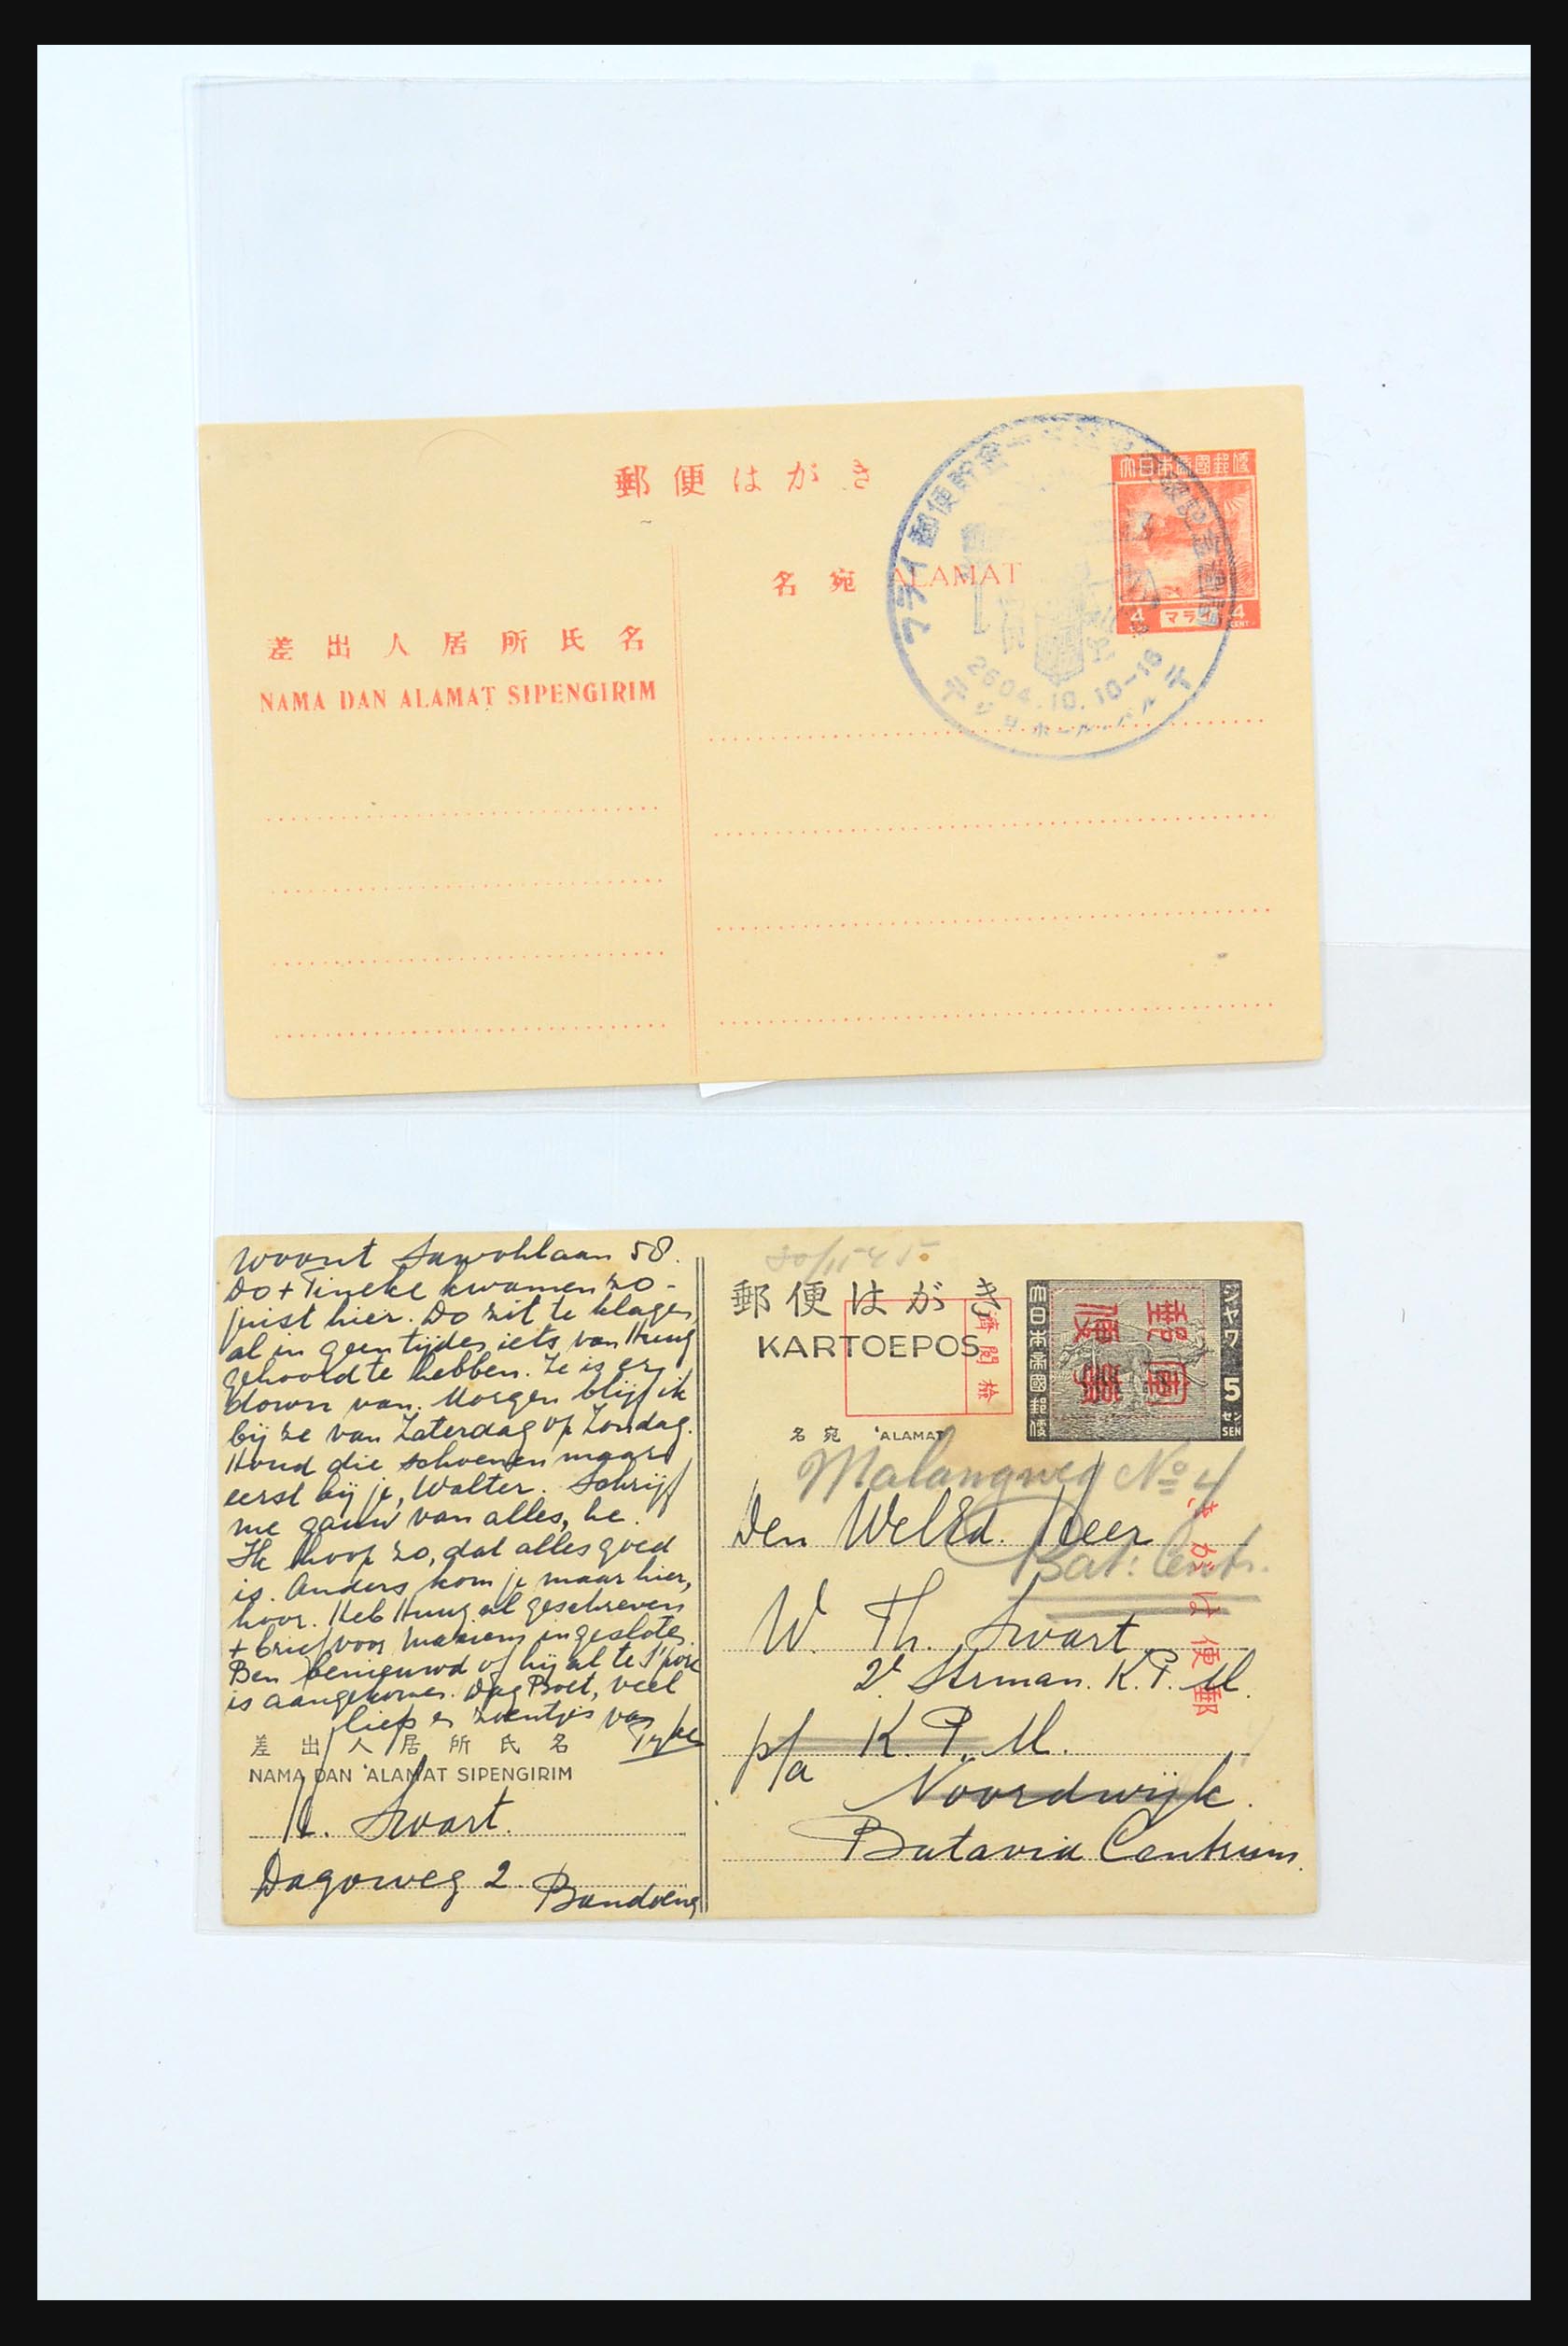 郵便はがき
大日本帝國郵便
名宛 ALAMAT
4 マライ 4
CENT
マライ郵便貯金
2604.10.10-16
差出人居所氏名
NAMA DAN ALAMAT SIPENGIRIM
woont Sawohlaan 58.
Do + Tineke kwamen zo-
juist hier. Do zit te klagen,
al in geen tijden iets van Huug
gehoord te hebben. Ze is er
down van. Morgen blijf ik
bij ze van Zaterdag op Zondag.
Houd die schoenen maar
eerst bij je, Walter. Schrijf
me gauw van alles, he.
Ik hoop zo, dat alles goed
is. Anders kom je maar hier,
hoor. Heb Huug al geschreven
+ brief voor ingesloten.
Ben benieuwd of hij al te S'pore
is aangekomen. Dag Boet, veel
liefs en zoentjes van
差出人居所氏名
NAMA DAN 'ALAMAT SIPENGIRIM
Swart.
Dagoweg 2. Bandoeng
郵便はがき
KARTOEPOS
濟閲檢
大日本帝國郵便
ジャワ 5 セン SEN
名宛 'ALAMAT
Malangweg No 4
Bat: Centr.
Den WelEd. Heer
W. Th. Swart
2e Strman. K.P.M.
p/a K.P.M.
Noordwijk.
Batavia Centrum.
郵便はがき